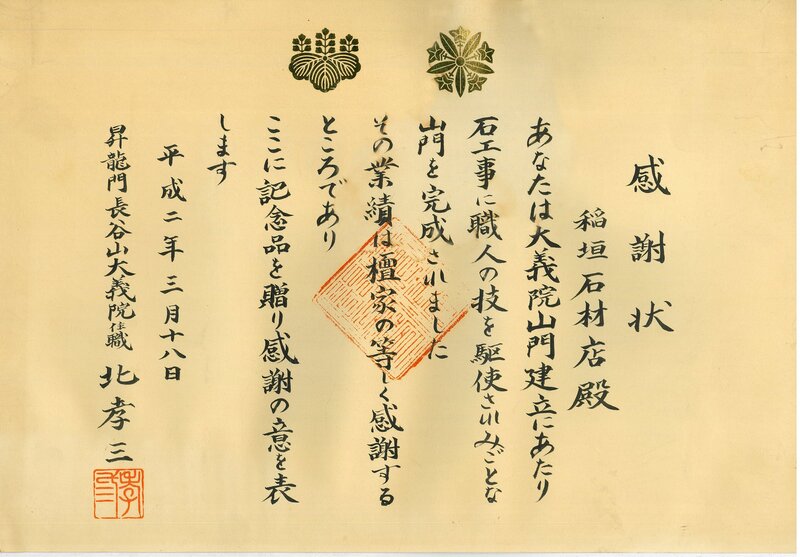 感謝状
稲垣石材店殿
あなたは大義院山門建立にあたり
石工事に職人の技を駆使されみごとな
山門を完成されました
その業績は檀家の等しく感謝する
ところであり
ここに記念品を贈り感謝の意を表
します
平成二年三月十八日
昇龍門長谷山大義院住職 北孝三